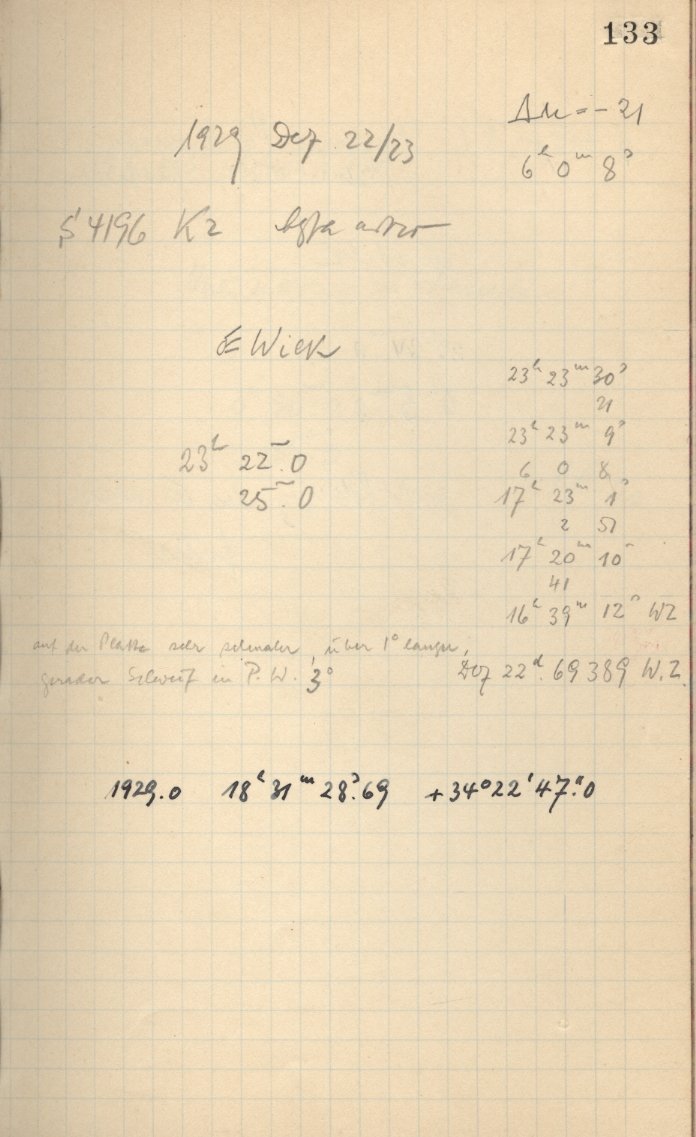 133
Δu = - 21
1929 Dez 22/23
6ʰ 0ᵐ 8ˢ
S 4196 K2 Agfa astro
E Wilk
23ʰ 23ᵐ 30ˢ
21
23ʰ 23ᵐ 9ˢ
23ʰ 22ᵐ.0
6 0 8
25ᵐ.0
17ʰ 23ᵐ 1ˢ
2 51
17ʰ 20ᵐ 10ˢ
41
16ʰ 39ᵐ 12ˢ WZ
auf der Platte sehr schmaler, über 1° langer,
gerader Schweif in P.W. 3°
Dez 22ᵈ.69389 W.Z.
1929.0 18ʰ 31ᵐ 28ˢ.69 +34°22'47".0